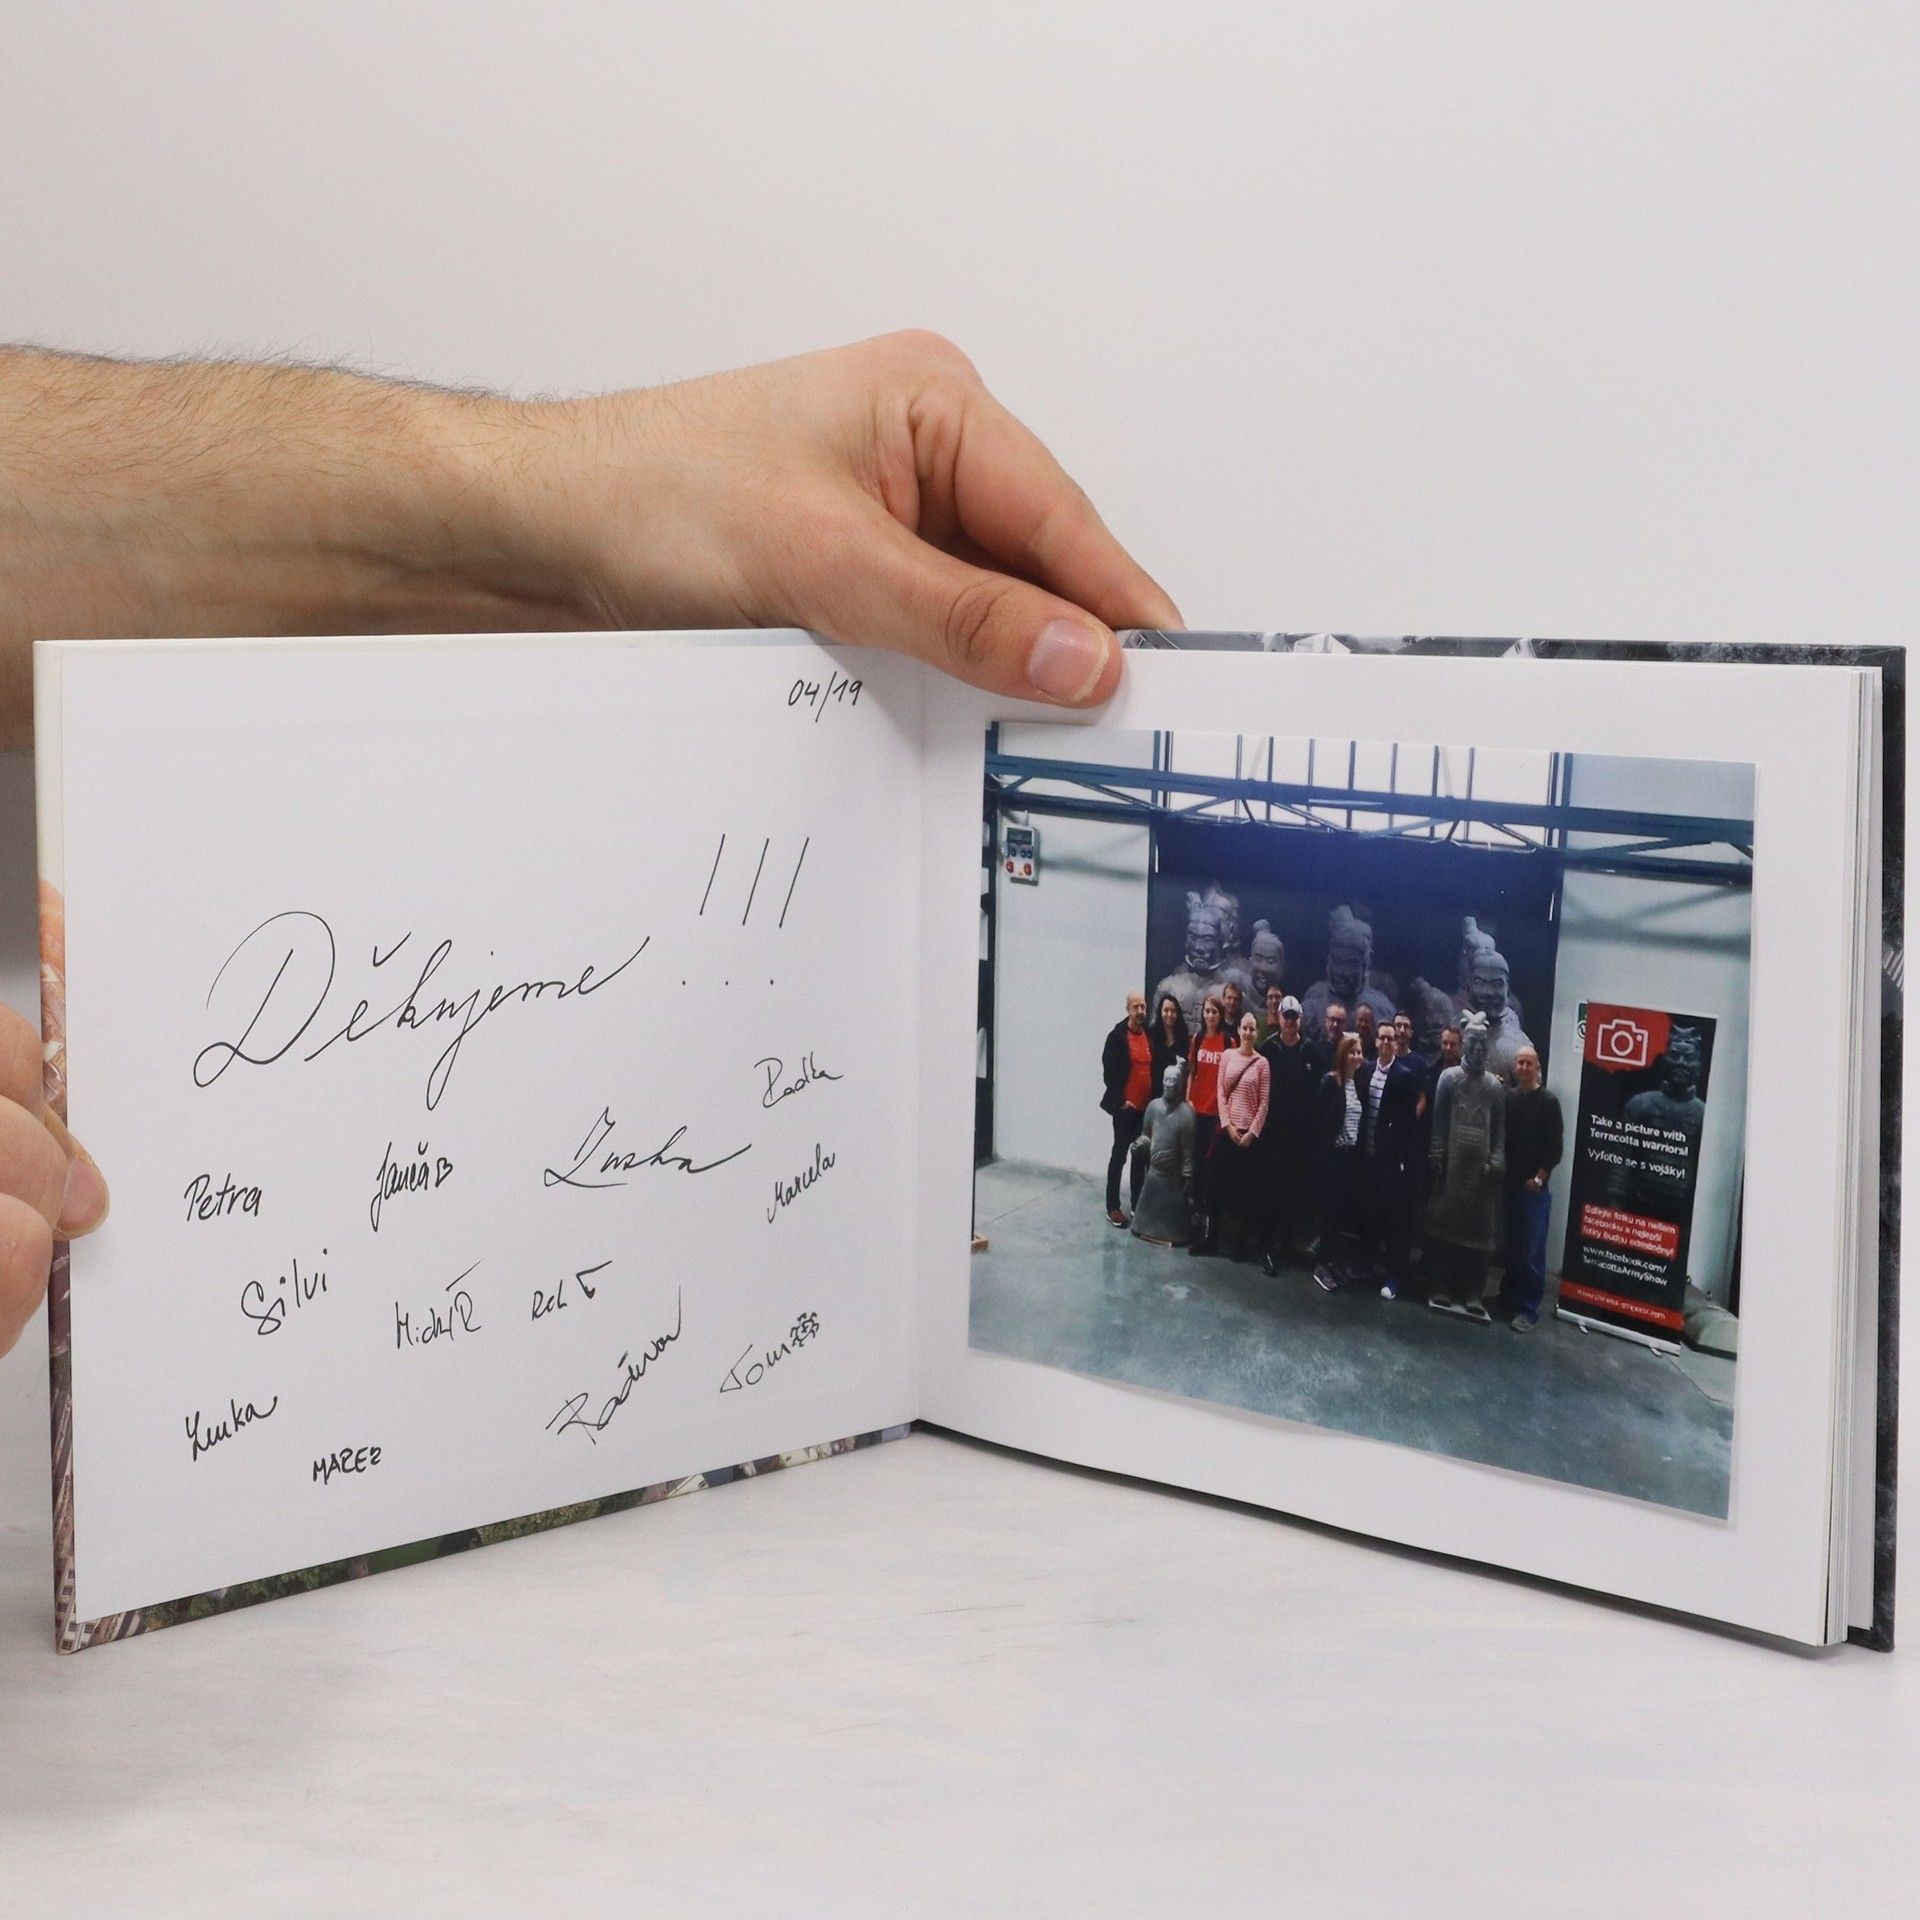 04/19
Děkujeme !!!
Radka
Petra
Janča B
Zuzka
Marcela
Silvi
Lenka
MAREZ
Radovan
Tom
Take a picture with
Terracotta warriors!
Vyfoťte se s vojáky!
Sdílejte fotku na našem
facebooku a nejlepší
fotky budou odměněny!
www.facebook.com/
TerracottaArmyShow